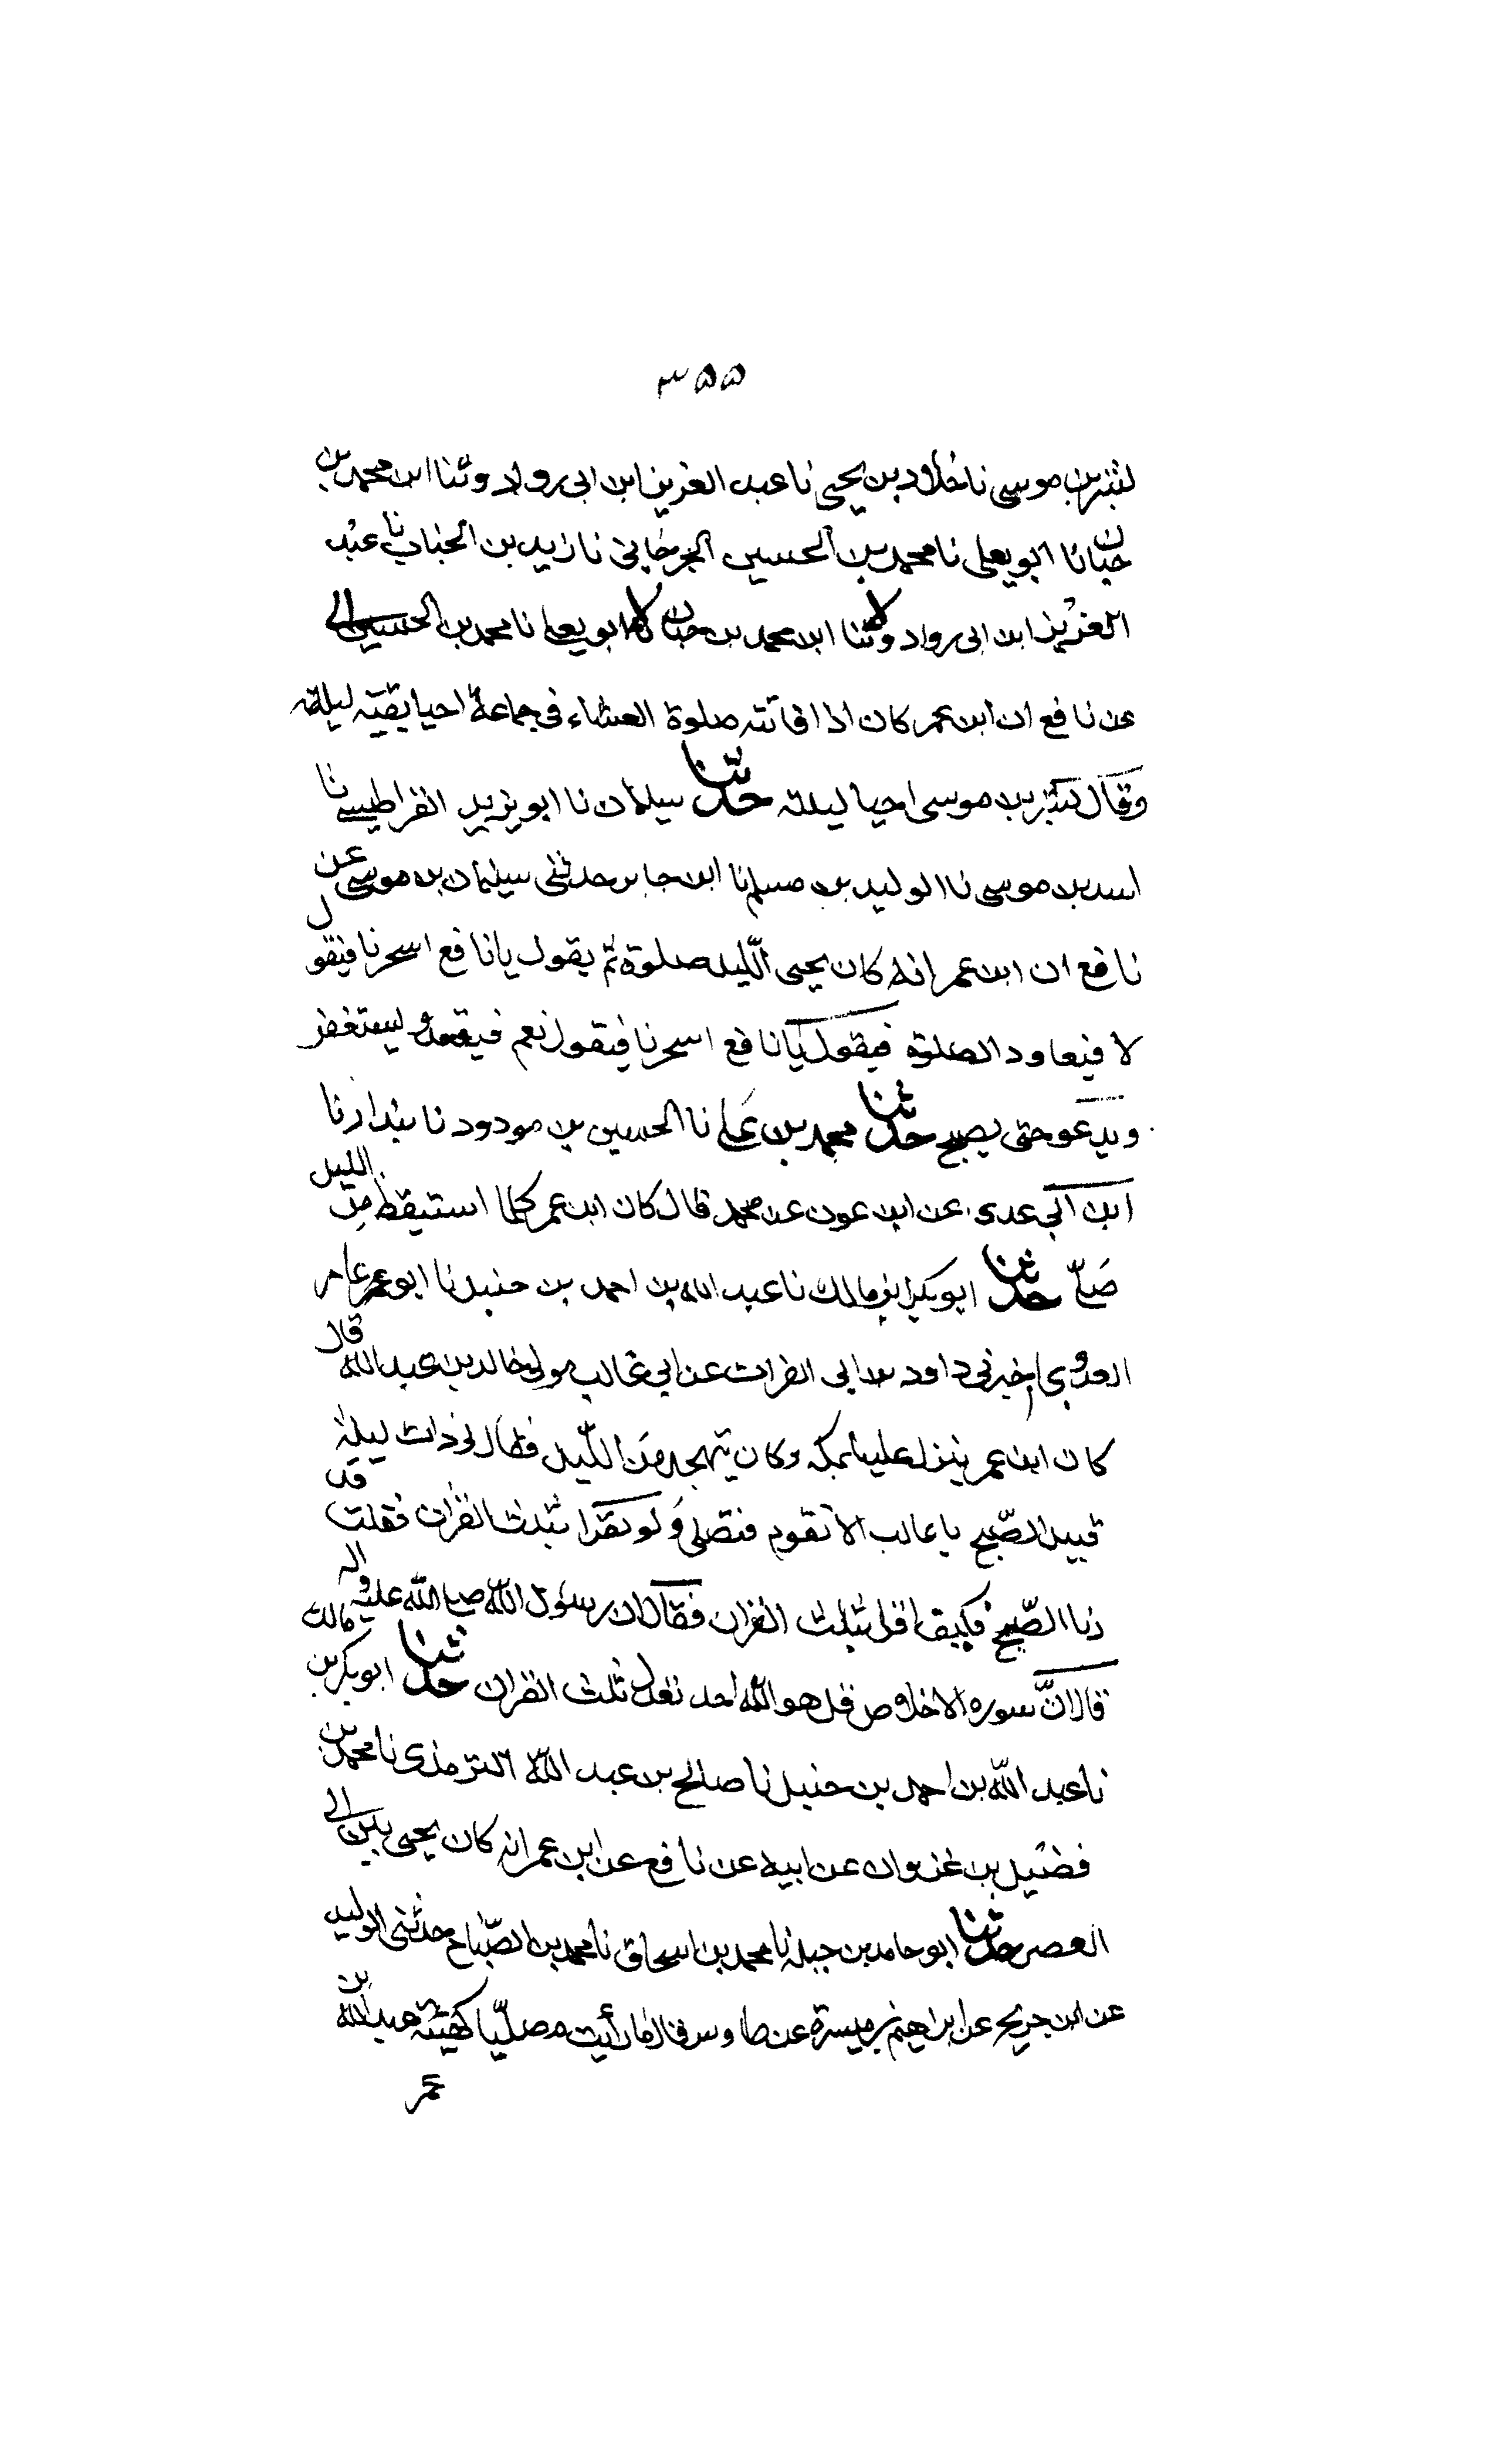 ٣٥٥
بشر بن موسى نا خلاد بن يحيى نا عبد العزيز ابن ابى رواد وثنا ابن محمد بن
حبان نا ابو يعلى نا محمد بن الحسين الجرجانى نا زيد بن الحباب نا عبد
العزيز ابن ابى رواد وثنا ابن محمد بن حبان نا ابو يعلى نا محمد بن الحسين
عن نافع ان ابن عمر كان اذا فاتته صلوة العشاء فى جماعة احيا بقية ليلته
وقال بشر بن موسى احيا ليلته حدثنا سليمان نا ابو يزيد القراطيسى نا
اسد بن موسى نا الوليد بن مسلم نا ابن جابر حدثنى سليمان بن موسى عن
نافع ان ابن عمر انه كان يحيى الليل صلوة ثم يقول يا نافع اسحرنا فيقول
لا فيعاود الصلوة فيقول يا نافع اسحرنا فيقول نعم فيقعد ويستغفر
ويدعو حتى يصبح حدثنا محمد بن على نا الحسين بن مودود نا بندار نا
ابن ابى عدى عن ابن عون عن محمد قال كان ابن عمر كلما استيقظ من الليل
صلّى حدثنا ابو بكر بن مالك نا عبد الله بن احمد بن حنبل نا ابو عامر
العدوى اخبرنى داود بن ابى الفرات عن ابى غالب مولى خالد بن عبد الله قال
كان ابن عمر ينزل علينا بمكة وكان يتهجد من اللّيل فقال لى ذات ليلة
قبيل الصّبح يا غالب الا تقوم فتصلى ولو تقرا بثلث القران فقلت قد
دنا الصّبح فكيف اقرا بثلث القران فقال ان رسول اللّه صلى اللّه عليه واله
قال انّ سورة الاخلاص قل هو اللّه احد تعدل ثلث القران حدثنا ابو بكر بن مالك
نا عبد اللّه بن احمد بن حنبل نا صالح بن عبد اللّه الترمذى نا محمد بن
فضيل بن غزوان عن ابيه عن نافع عن ابن عمر انه كان يحيى بين الى
العصر حدثنا ابو حامد بن جبلة نا محمد بن اسحاق نا محمد بن الصّباح حدثنى الوليد
عن ابن جريج عن ابراهيم بن ميسرة عن طاوس قال ما رأيت مصلّيا كهيئة عبد اللّه بن
عمر